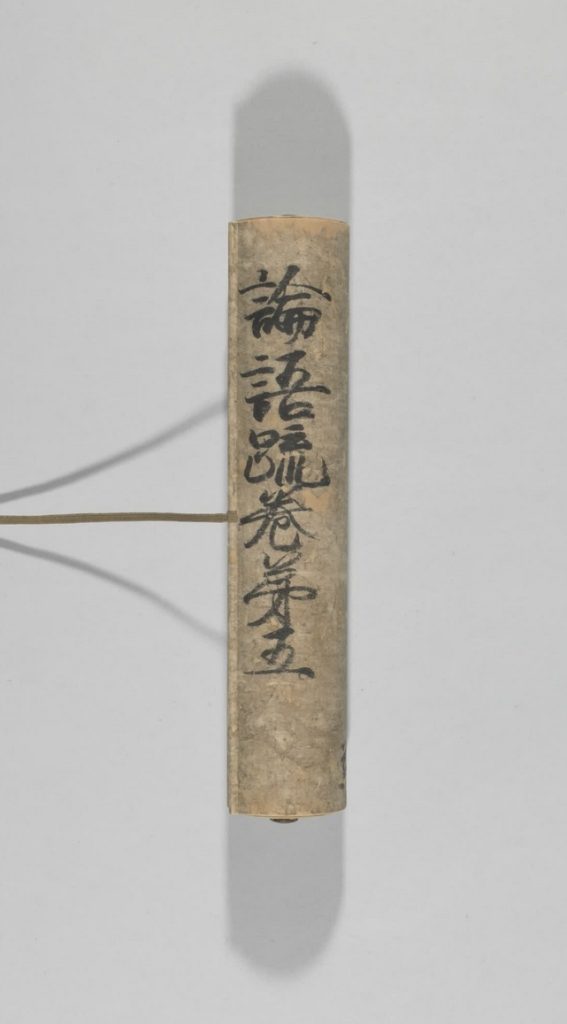 論語疏巻第五